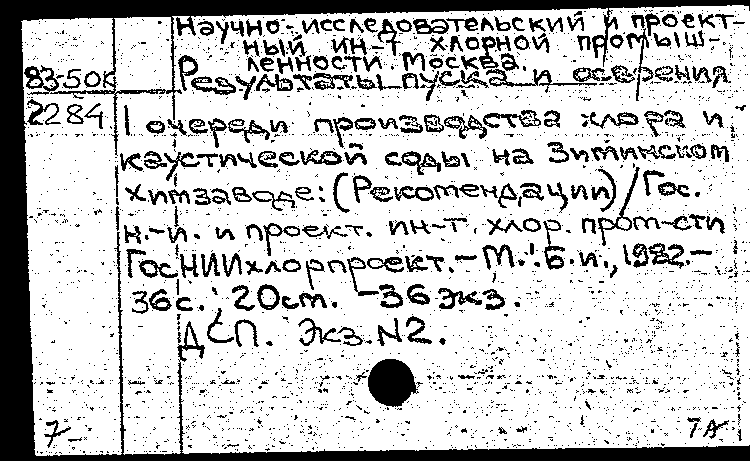 Научно-исследовательский и проект-
ный ин-т хлорной промыш-
ленности. Москва.
83-50К Результаты пуска и освоения
2284 I очереди производства хлора и
каустической соды на Зиминском
химзаводе: (Рекомендации)/Гос.
н.-и. и проект. ин-т. хлор. пром-сти
ГосНИИхлорпроект.-М.: Б.и., 1982.-
36с.; 20см. -36 экз.
ДСП. Экз.N2.
7 7А